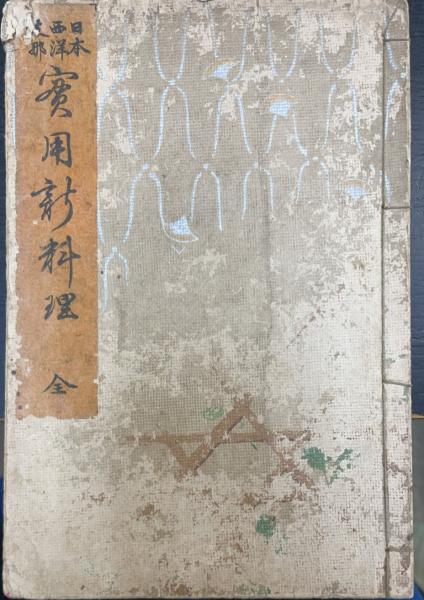 日本
西洋
支那
實用新料理 全